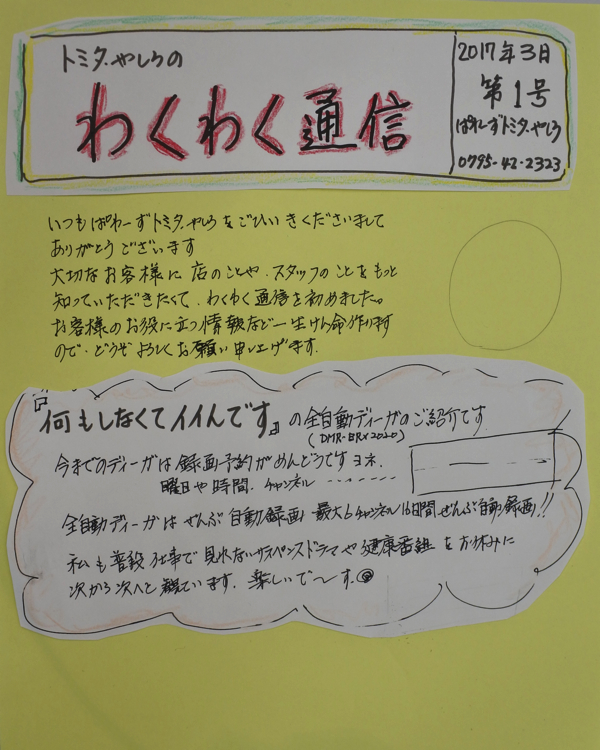 トミタ.やしろの
わくわく通信
2017年3日
第1号
ぱわーずトミタ.やしろ
0795-42-2323
いつもぱわーずトミタ.やしろをごひいきくださいまして
ありがとうございます
大切なお客様に店のことや、スタッフのことをもっと
知っていただきたくて、わくわく通信を初めました。
お客様のお役に立つ情報など一生けん命作ります
ので、どうぞよろしくお願い申し上げます.
『何もしなくてイイんです』の全自動ディーガのご紹介です
(DMR-BRX2020)
今までのディーガは録画予約がめんどうですヨネ.
曜日や時間.チャンネル ------
全自動ディーガはぜんぶ自動録画 最大6チャンネル16日間ぜんぶ自動録画!!
私も普段仕事で見れないサスペンスドラマや健康番組をお休みに
次から次へと観ています.楽しいで〜す.